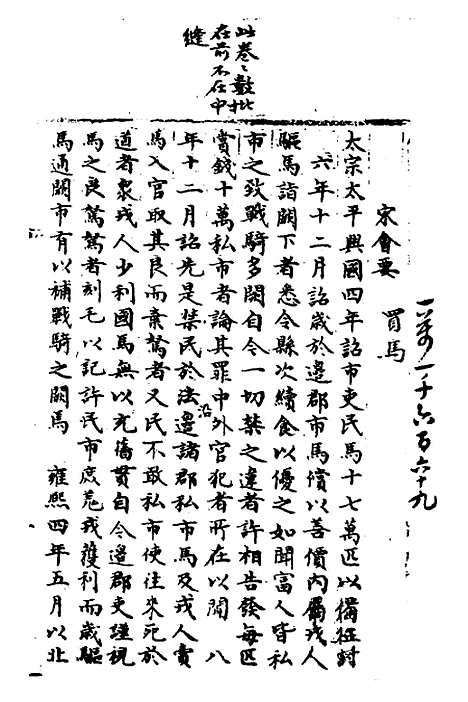 此卷卷數批
在前不在中
縫
一萬一千六百六十九
宋會要
買馬
太宗太平興國四年詔市吏民馬十七萬匹以備征討
六年十二月詔歲於邊郡市馬償以善價內屬戎人
驅馬詣闕下者悉令縣次續食以優之如聞富人皆私
市之致戰騎多闕自今一切禁之違者許相告發每匹
賞錢十萬私市者論其罪中外官犯者所在以聞 八
年十二月詔先是禁民於法邊諸郡私市馬及戎人賣
沿
馬入官取其良而棄駑者又民不敢私市使往來死於
道者衆戎人少利國馬無以充舊貫自今邊郡吏謹視
馬之良駑駑者刻毛以記許民市庶羌戎獲利而歲驅
馬通闕市有以補戰騎之闕馬 雍熙四年五月以北